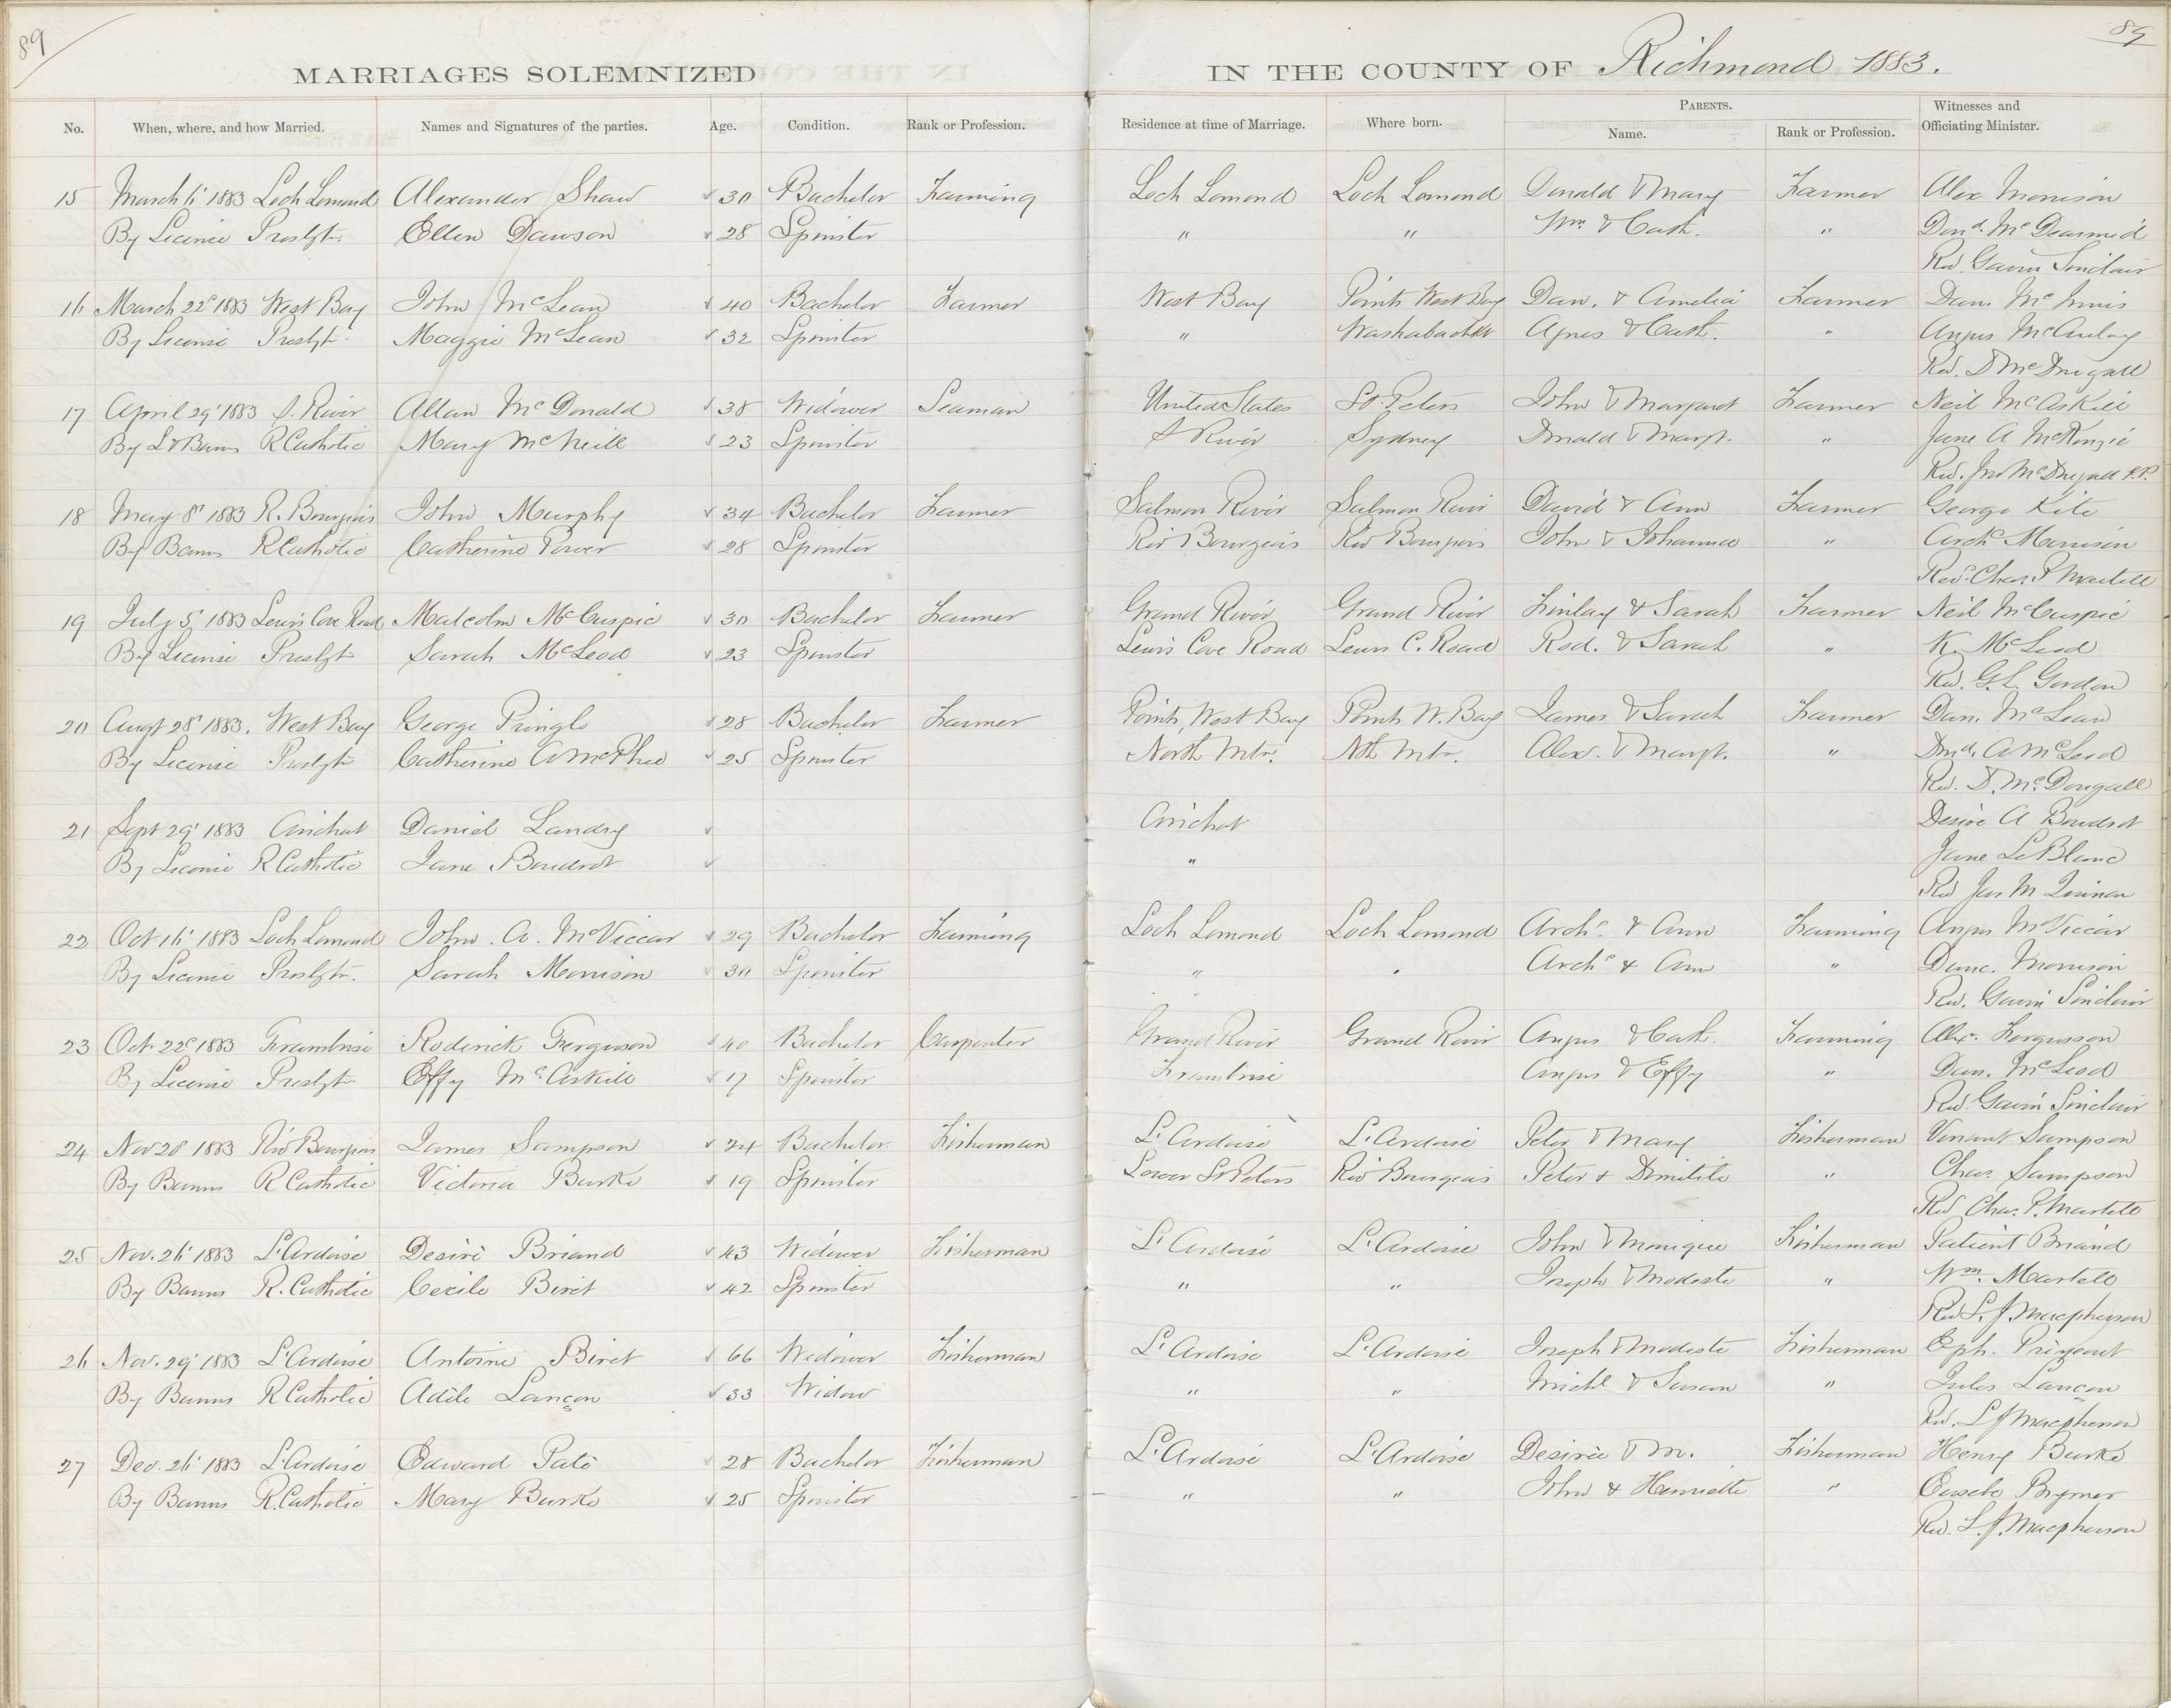 89
89
MARRIAGES SOLEMNIZED IN THE COUNTY OF Richmond 1883.
No. When, where, and how Married. Names and Signatures of the parties. Age. Condition. Rank or Profession. Residence at time of Marriage. Where born. PARENTS. Name. Rank or Profession. Witnesses and Officiating Minister.
15 March 6' 1883 Loch Lomond Alexander Shaw 30 Bachelor Farming Loch Lomond Loch Lomond Donald & Mary Farmer Alex Morrison
By License Presbyt. Ellen Dawson 28 Spinster " " Wm & Cath. " Dond. McDearmid
Rev. Gavin Sinclair
16 March 22d 1883 West Bay John McLean 40 Bachelor Farmer West Bay Points West Bay Dan. & Amelia Farmer Dun. McInnis
By License Presbyt. Maggie McLean 32 Spinster " Washaback & Cath. " Angus McAulay
Rev. D McDougall
17 April 29' 1883 S. River Allan McDonald 38 Widower Seaman United States St. Peters John & Margaret Farmer Neil McAskill
By L & Banns R Catholic Mary McNeill 23 Spinster S River Sydney Donald & Margt. " Jane A McKenzie
Rev. Jno McDougall P.P.
18 May 8' 1883 R. Bourgeois John Murphy 34 Bachelor Farmer Salmon River Salmon River David & Ann Farmer George Kite
By Banns R Catholic Catherine Power 28 Spinster Riv Bourgeois Riv Bourgeois John & Johanna " Archd Morrison
Rev. Chas. P Martell
19 July 5' 1883 Lewis Cove Road Malcolm McCuspic 30 Bachelor Farmer Grand River Grand River Finlay & Sarah Farmer Neil McCuspic
By License Presbyt Sarah McLeod 23 Spinster Lewis Cove Road Lewis C. Road Rod. & Sarah " K. McLeod
Rev. G.L. Gordon
20 Augt 28' 1883. West Bay George Pringle 28 Bachelor Farmer Points, West Bay Points W. Bay James & Sarah Farmer Dan. McLean
By License Presbyt Catherine A McPhee 25 Spinster North Mtn. Nth Mtn. Alex. & Margt. " Dond. A McLeod
Rev. D. McDougall
21 Sept 29' 1883 Arichat Daniel Landry Arichat Desire A Boudrot
By License R Catholic Jane Boudrot " Jane LeBlanc
Rev Jas M Quinan
22 Oct 16' 1883 Loch Lomond John. A. McViccar 29 Bachelor Farming Loch Lomond Loch Lomond Archd. & Ann Farming Angus McViccar
By License Presbyt. Sarah Morrison 30 Spinster " " Archd & Ann " Dunc. Morrison
Rev. Gavin Sinclair
23 Oct. 22d 1883 Framboise Roderick Ferguson 40 Bachelor Carpenter Grand River Grand River Angus & Cath. Farming Alex. Fergusson
By License Presbyt. Effy McAskill 17 Spinster Framboise Angus & Effy " Dun. McLeod
Rev. Gavin Sinclair
24 Nov 20 1883 Riv Bourgeois James Sampson 24 Bachelor Fisherman L'Ardoise L'Ardoise Peter & Mary Fisherman Venant Sampson
By Banns R Catholic Victoria Burke 19 Spinster Lower St Peters Riv Bourgeois Peter & " Chas. Sampson
Rev Chas. P. Martell
25 Nov. 26' 1883 L'Ardoise Desiré Briand 43 Widower Fisherman L'Ardoise L'Ardoise John & Monique Fisherman Patient Briand
By Banns R. Catholic Cecile Biret 42 Spinster " " Joseph & Modeste " Wm. Martell
Rev L. J. Macpherson
26 Nov. 29' 1883 L'Ardoise Antoine Biret 66 Widower Fisherman L'Ardoise L'Ardoise Joseph & Modeste Fisherman Eph. Prizeant
By Banns R Catholic Adèle Lançon 33 Widow " " Michl & Susan " Jules Lançon
Rev. L J Macpherson
27 Dec. 26' 1883 L'Ardoise Edward Paté 28 Bachelor Fisherman L'Ardoise L'Ardoise Desirée & M. Fisherman Henry Burke
By Banns R. Catholic Mary Burke 25 Spinster " " John & Henriette " Eusebe Brymer
Rev. L. J. Macpherson